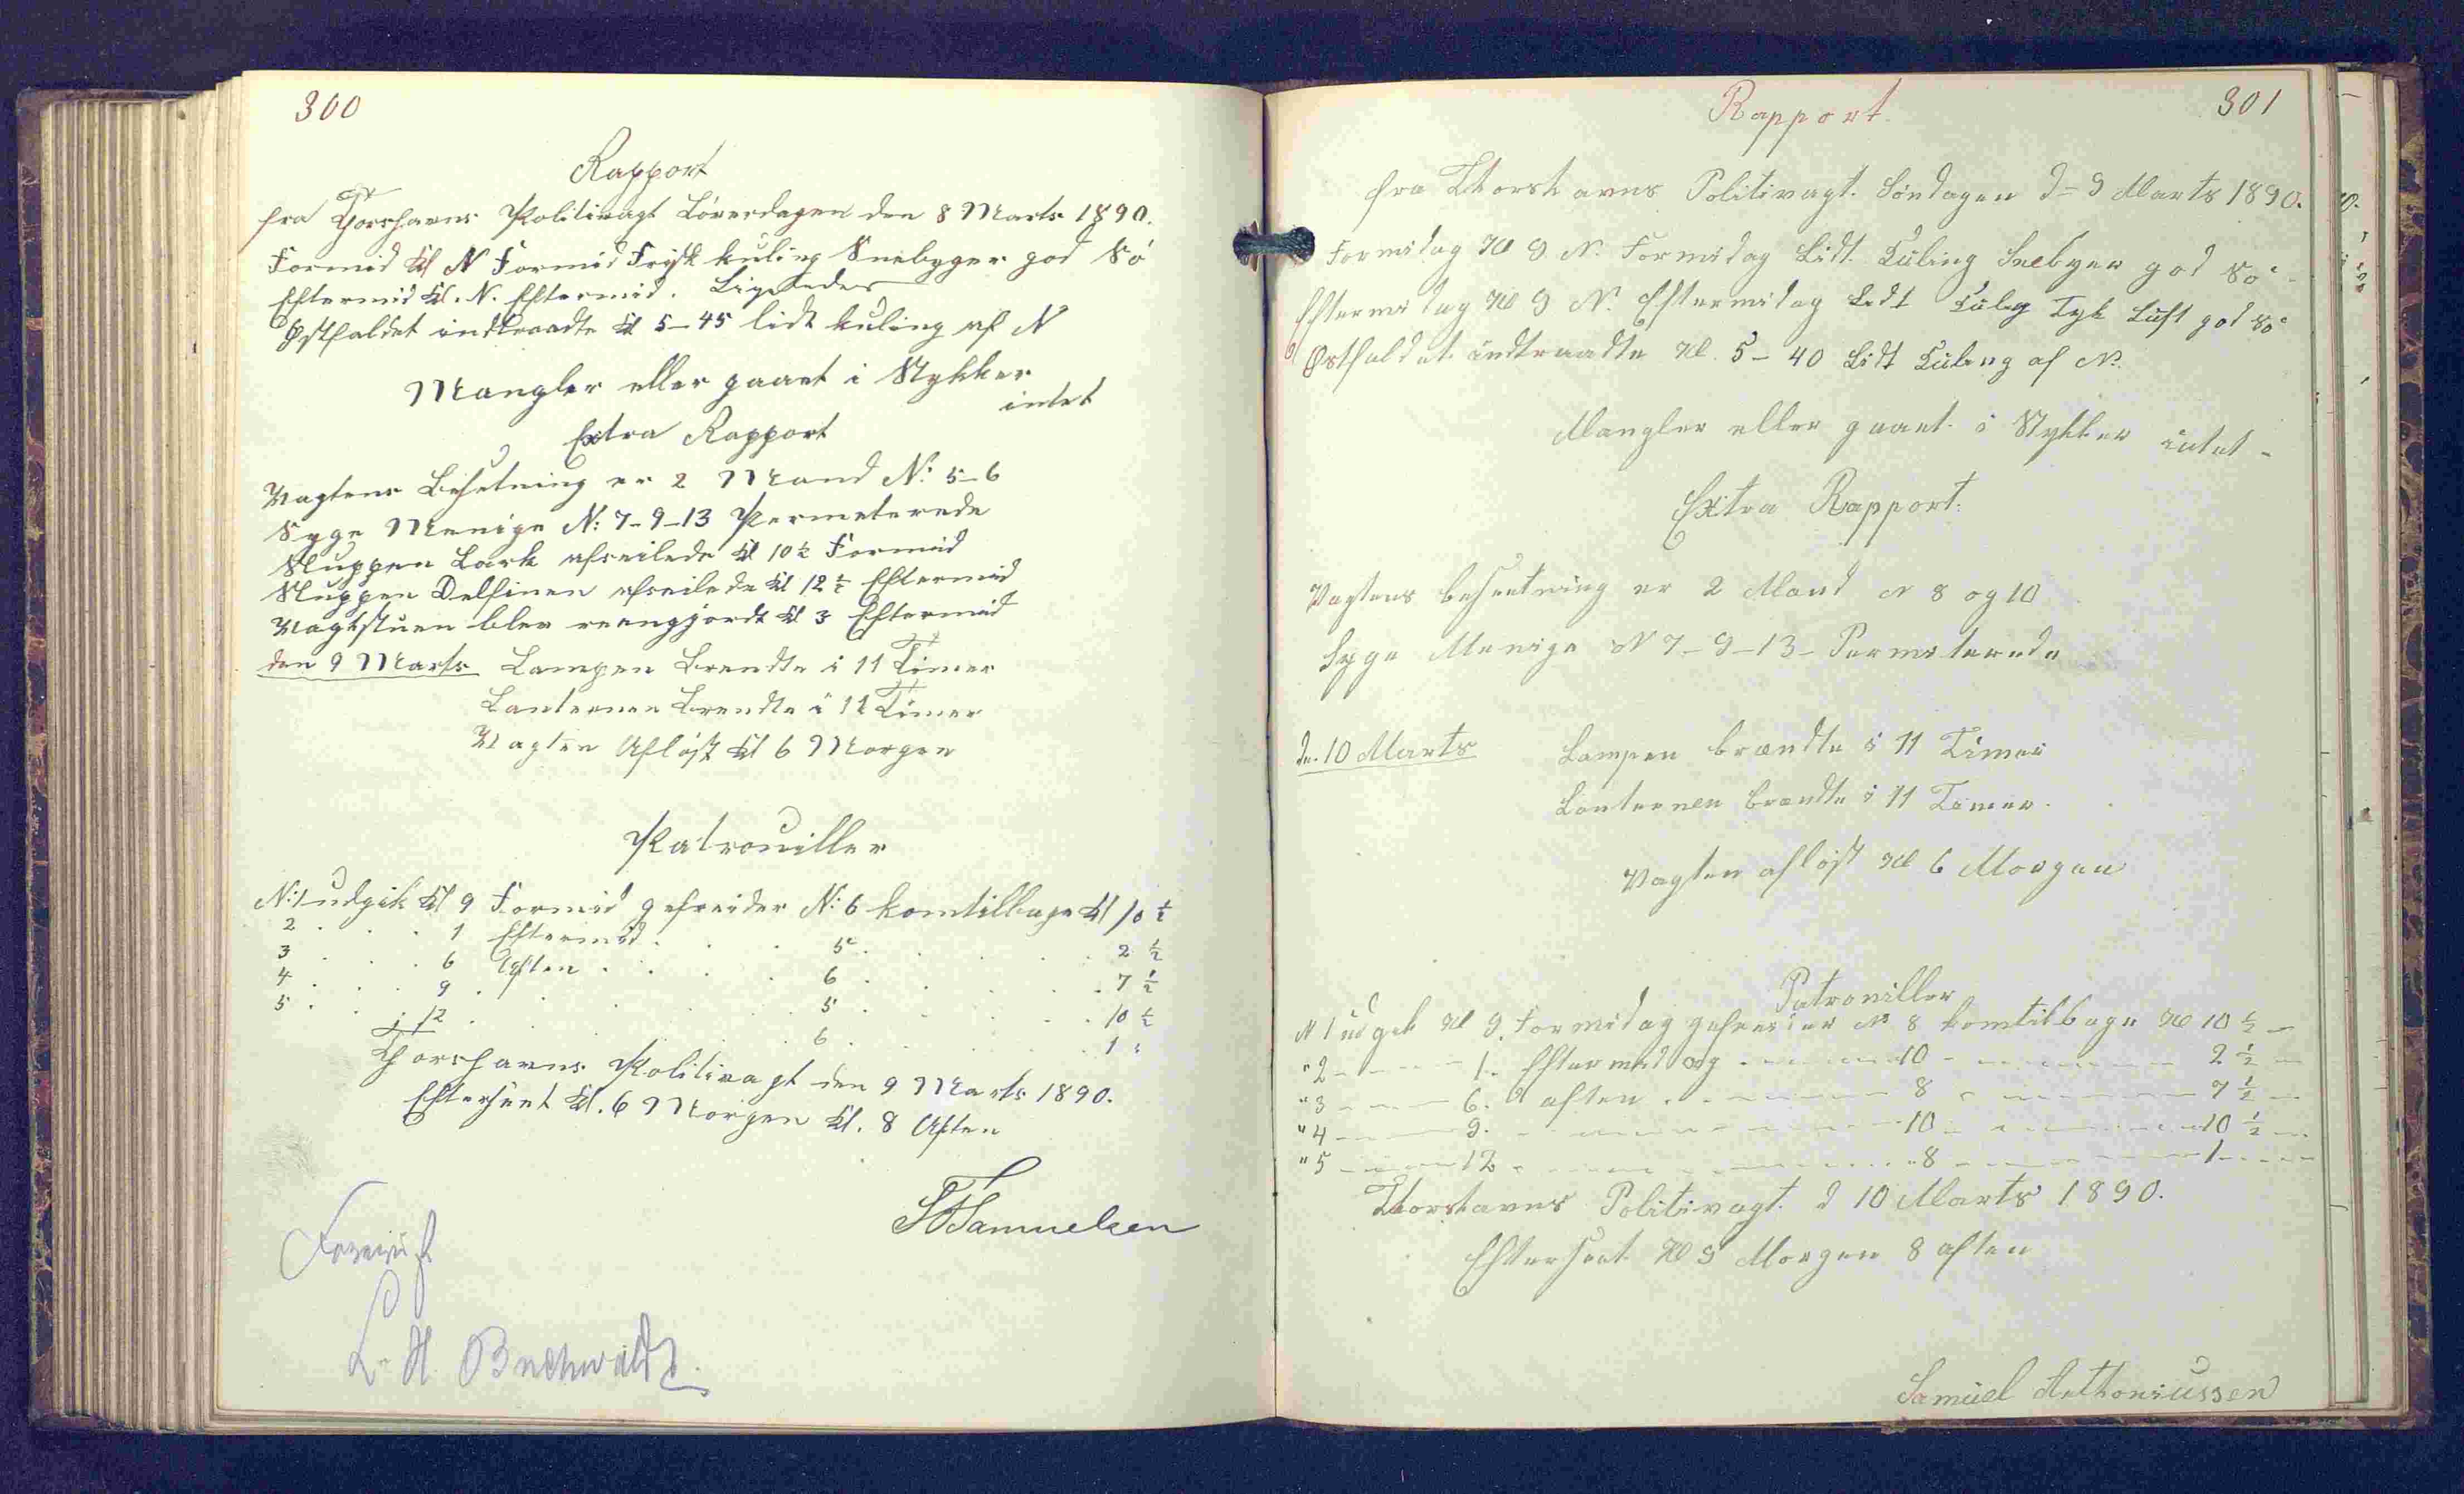 300
Rapport
fra Thorshavns Politivagt Löverdagen den 8 Marts 1890.
Formid Kl N Formid Frisk kuling Snebyger god Sö
Eftermid Kl. N. Eftermid. Ligeledes
Østfaldet indtraadte Kl 5-45 lidt kuling af N
Mangler eller gaaet i Stykker
intet
Extra Rapport
Vagtens Besetning er 2 Mand N: 5-6
Syge Menige N: 7-9-13 Permeterede
Sluppen Lark afseilede Kl 10½ Formid
Sluppen Delfinen afseilede Kl 12½ Eftermid
Vagtstuen blev reengjordt Kl 3 Eftermid
den 9 Marts Lampen Brendte i 11 Timer
Lanternen Brendte i 11 Timer
Vagten Aflöst Kl 6 Morgen
Patrouiller
N:1 udgik Kl 9 Formid gefreider N: 6 kom tilbage Kl 10½
2 . . . 1 Eftermid . . . 5 . . . 2½
3 . . . 6 Aften . . . 6 . . . 7½
4 . . . 9 . . . 5 . . . 10½
5 . . . 12 . . . 6 . . . 1 "
Thorshavns Politivagt den 9 Marts 1890.
Efterseet Kl. 6 Morgen Kl. 8 Aften
Samuelsen
Foreviist
L. H. Buchwaldt
301
Rapport.
fra Thorshavns Politivagt. Söndagen d= 9 Marts 1890.
Formidag Kl 9 N. Formidag Lidt Kuling Snebyer god Sö
Eftermidag Kl 9 N. Eftermidag Lidt Kuling Tyk Luft god Sö
Østfaldet indtraadte Kl. 5-40 Lidt Kuling af N.
Mangler eller gaaet i Stykker intet -
Extra Rapport.
Vagtens besætning er 2 Mand N 8 og 10
Syge Menige N 7-9-13- Permiterede
d. 10 Marts Lampen brændte i 11 Timer
Lanternen brændte i 11 Timer.
Vagten aflöst Kl 6 Morgen
Patrouiller
N 1 udgik Kl 9. Formidag gefreider N 8 kom tilbage Kl 10½ -
" 2 - - - 1. Eftermidag - - - 10 - - - 2½ -
" 3 - - - 6. aften - - - 8 - - - 7½ -
" 4 - - - 9. - - - 10 - - - 10½ -
" 5 - - - 12 - - - 8 - - - 1 - - -
Thorshavns Politivagt. d 10 Marts 1890.
Efterseet Kl 9 Morgen 8 aften
Samuel Anthoniussen